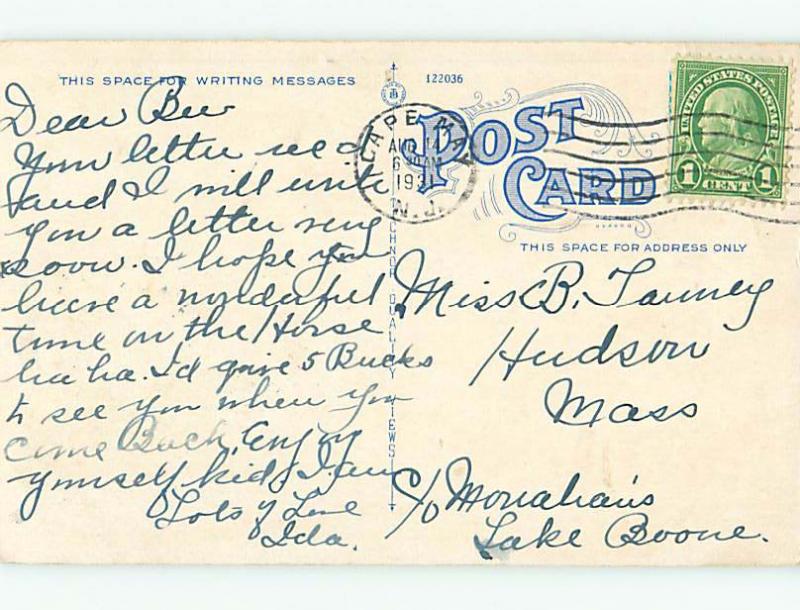 THIS SPACE FOR WRITING MESSAGES
122036
POST
CARD
CAPE MAY
AUG 14
630 AM
193
N.J.
UNITED STATES POSTAGE
1 CENT 1
THIS SPACE FOR ADDRESS ONLY
TICHNOR QUALITY VIEWS
Dear Bee
Your letter rec'd
and I will write
you a letter very
soon. I hope you
have a wonderful
time on the Horse
ha ha. I'd give 5 Bucks
to see you when you
come Back. Enjoy
yourself kid, I am
Lots of Love
Ida.
Miss B.
Hudson
Mass
c/o Monahan's
Lake Boone.